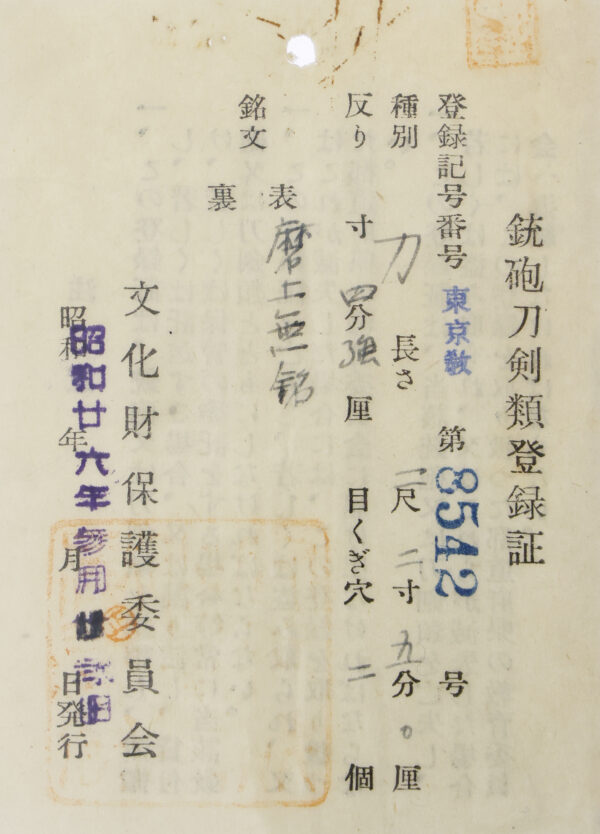 銃砲刀剣類登録証
登録記号番号 東京教 第 8542 号
種別 刀 長さ 二尺 二寸 五分 〇厘
反り 寸 四分強 厘 目くぎ穴 二 個
銘文 表 磨上無銘
裏
文化財保護委員会
昭和 年 月 日発行
昭和廿六年参月